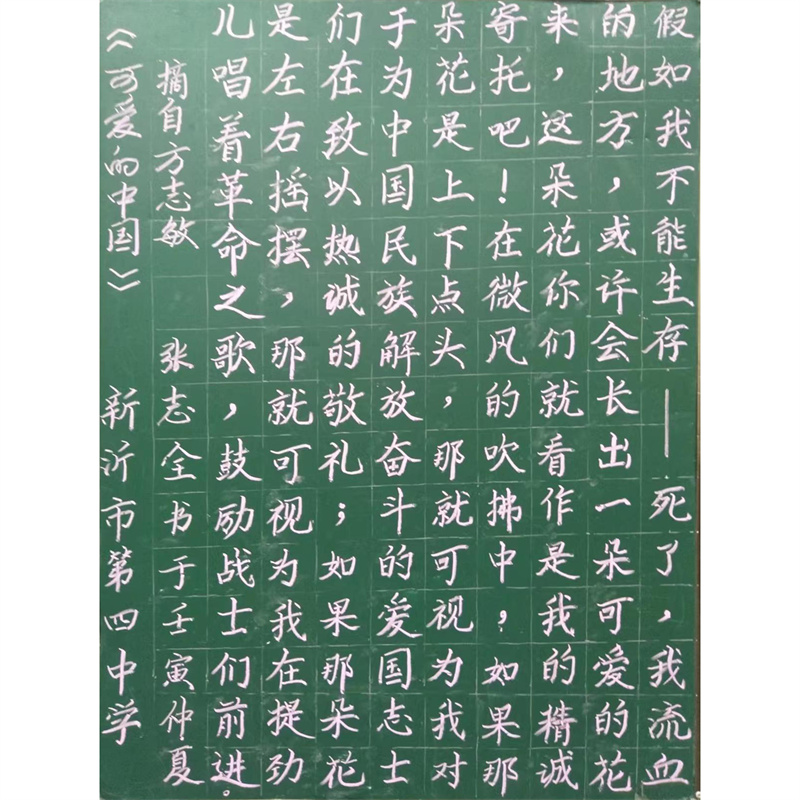 假如我不能生存——死了，我流血
的地方，或许会长出一朵可爱的花
来，这朵花你们就看作是我的精诚
寄托吧！在微风的吹拂中，如果那
朵花是上下点头，那就可视为我对
于为中国民族解放奋斗的爱国志士
们在致以热诚的敬礼；如果那朵花
是左右摇摆，那就可视为我在提劲
儿唱着革命之歌，鼓励战士们前进
摘自方志敏 张志全书于壬寅仲夏
《可爱的中国》 新沂市第四中学